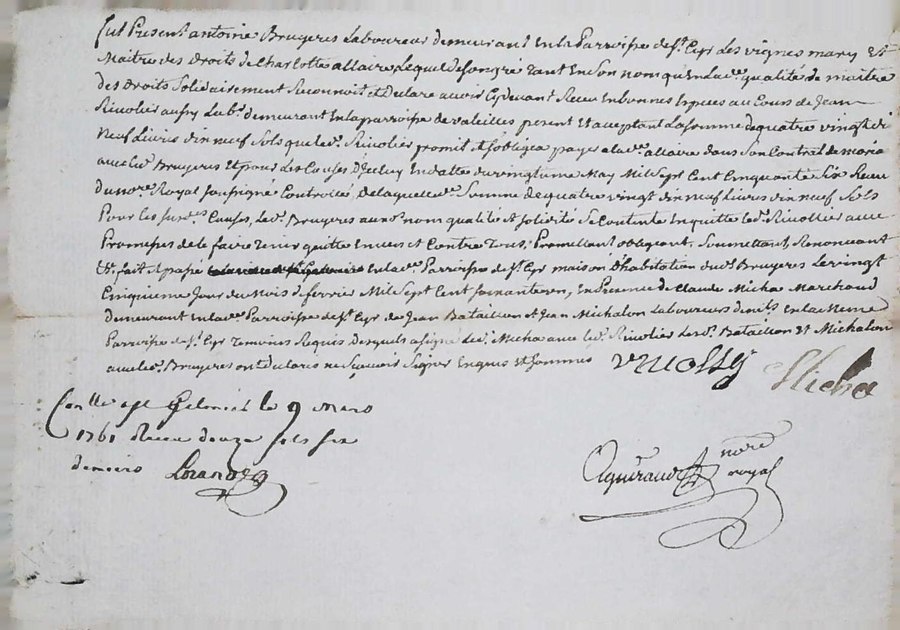 fut Present antoine Bruyeres Laboureur demeurant En la Parroisse de st. Cyr Les vignes mary Et
Maitre des Droits de Charlotte allaire Lequel de son gré Tant En son nom qu'En lad.e qualité de maitre
des Droits Solidairement Reconnoit et declare avoir Cy devant Receu En bonnes Especes au Cours de Jean
Rivolier aussy Lab.r demeurant En la parroisse de valeilles present Et acceptant La somme de quatre vingt di
Neuf Livres din neuf Sols que led.r Rivolier promit et s'obligea payer a lad.e allaire dans Son Contrat de maria
avec led. Bruyeres Et pour Les Causes D'Iceluy En datte du vingt une May Mil Sept Cent Cinquante Six Receu
du no.re Royal soussigné Controllé, De laquelle d.e Somme de quatre vingt din neuf Livres din neuf Sols
Pour les susd.es Causes, led. Bruyeres aux d. nom qualité et solidité Se Contente En quitte led. Rivollier avec
Promesses de le faire Tenir quitte Envers et Contre Tous, Promettant obligeant, Soumettant, Renoncant
&. fait et passé En lad.e Parroisse de st. Cyr maison d'habitation du d. Bruyeres Le vingt
Cinquieme Jour du Mois de fevrier Mil Sept Cent soixante un, En Presence de Claude Micha Marchand
demeurant En lad.e Parroisse de st. Cyr de Jean Bataillon et Jean Michalon Laboureurs demts. En la meme
Parroisse de st. Cyr Temoins Requis desquels a signé led. Micha avec led. Rivolier Les d. Bataillon Et Michalon
avec led. Bruyeres ont declarés ne Scavoir Signer Enquis et Sommés
Micha
Con llé a st Galmier le 9 Mars
1761 Receu douze sols six
deniers
no.re
royal